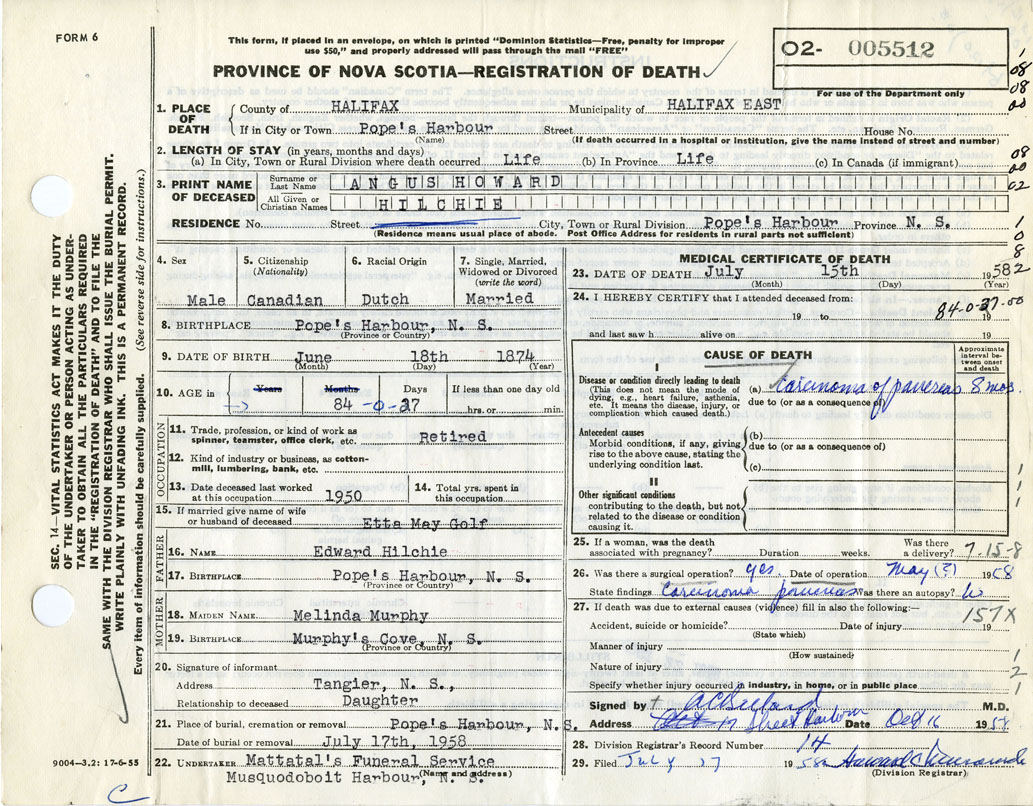 FORM 6
This form, if placed in an envelope, on which is printed "Dominion Statistics—Free, penalty for improper
use $50," and properly addressed will pass through the mail "FREE"
PROVINCE OF NOVA SCOTIA—REGISTRATION OF DEATH
02- 005512
For use of the Department only
1. PLACE OF DEATH County of HALIFAX Municipality of HALIFAX EAST
If in City or Town Pope's Harbour Street House No.
(Name) (If death occurred in a hospital or institution, give the name instead of street and number)
2. LENGTH OF STAY (in years, months and days)
(a) In City, Town or Rural Division where death occurred Life (b) In Province Life (c) In Canada (if immigrant)
3. PRINT NAME OF DECEASED Surname or Last Name ANGUS HOWARD
All Given or Christian Names HILCHIE
RESIDENCE No. Street City, Town or Rural Division Pope's Harbour Province N. S.
(Residence means usual place of abode. Post Office Address for residents in rural parts not sufficient)
4. Sex 5. Citizenship (Nationality) 6. Racial Origin 7. Single, Married, Widowed or Divorced (write the word)
Male Canadian Dutch Married
8. BIRTHPLACE Pope's Harbour, N. S.
(Province or Country)
9. DATE OF BIRTH June 18th 1874
(Month) (Day) (Year)
10. AGE in Years Months Days If less than one day old
84 -0-27 hrs. or min.
OCCUPATION
11. Trade, profession, or kind of work as spinner, teamster, office clerk, etc. Retired
12. Kind of industry or business, as cotton-mill, lumbering, bank, etc.
13. Date deceased last worked at this occupation 1950 14. Total yrs. spent in this occupation
15. If married give name of wife or husband of deceased Etta May Golf
FATHER
16. NAME Edward Hilchie
17. BIRTHPLACE Pope's Harbour, N. S.
(Province or Country)
MOTHER
18. MAIDEN NAME Melinda Murphy
19. BIRTHPLACE Murphy's Cove, N. S.
(Province or Country)
20. Signature of informant
Address Tangier, N. S.,
Relationship to deceased Daughter
21. Place of burial, cremation or removal Pope's Harbour, N. S.
Date of burial or removal July 17th, 1958
22. UNDERTAKER Mattatal's Funeral Service
Musquodoboit Harbour, N. S.
(Name and address)
MEDICAL CERTIFICATE OF DEATH
23. DATE OF DEATH July 15th 1958
(Month) (Day) (Year)
24. I HEREBY CERTIFY that I attended deceased from:
19 to 19
84-0-27-00
and last saw h alive on 19
CAUSE OF DEATH
Approximate interval between onset and death
I
Disease or condition directly leading to death (a) Carcinoma of pancreas 8 mos
(This does not mean the mode of dying, e.g., heart failure, asthenia, etc. It means the disease, injury, or complication which caused death.) due to (or as a consequence of)
Antecedent causes (b)
Morbid conditions, if any, giving rise to the above cause, stating the underlying condition last. due to (or as a consequence of)
(c)
II
Other significant conditions
contributing to the death, but not related to the disease or condition causing it.
25. If a woman, was the death associated with pregnancy? Duration weeks. Was there a delivery?
7-15-8
26. Was there a surgical operation? yes Date of operation May (?) 1958
State findings Carcinoma pancreas Was there an autopsy?
27. If death was due to external causes (violence) fill in also the following:—
157X
Accident, suicide or homicide? Date of injury 19
(State which)
Manner of injury
(How sustained)
Nature of injury
Specify whether injury occurred in industry, in home, or in public place
Signed by M.D.
Address Sheet Harbour Date 195
28. Division Registrar's Record Number 14
29. Filed July 17 1958
(Division Registrar)
SEC. 14—VITAL STATISTICS ACT MAKES IT THE DUTY
OF THE UNDERTAKER OR PERSON ACTING AS UNDER-
TAKER TO OBTAIN ALL THE PARTICULARS REQUIRED
IN THE "REGISTRATION OF DEATH" AND TO FILE THE
SAME WITH THE DIVISION REGISTRAR WHO SHALL ISSUE THE BURIAL PERMIT.
WRITE PLAINLY WITH UNFADING INK. THIS IS A PERMANENT RECORD.
Every item of information should be carefully supplied. (See reverse side for instructions.)
9004—3.2: 17-6-55
C